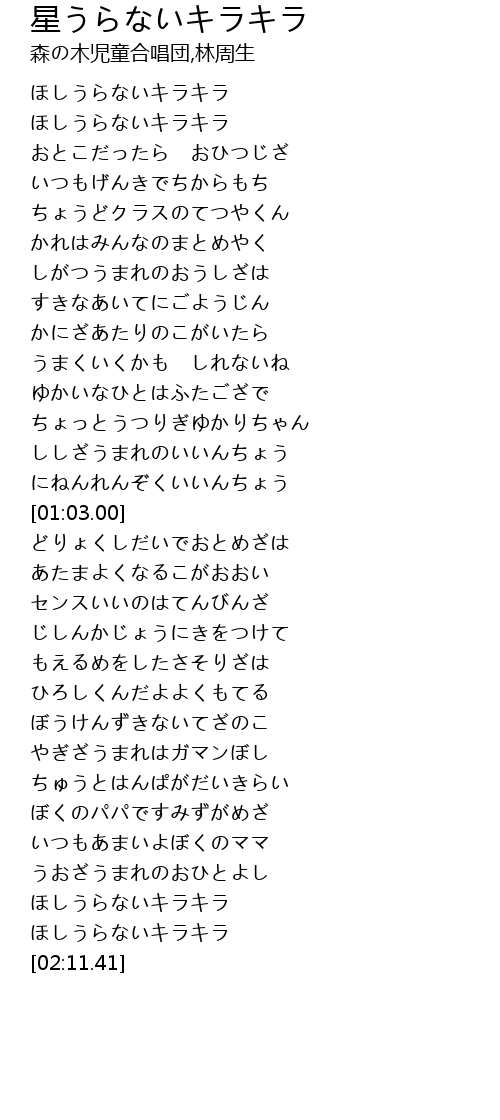 星うらないキラキラ
森の木児童合唱団,林周生
ほしうらないキラキラ
ほしうらないキラキラ
おとこだったら　おひつじざ
いつもげんきでちからもち
ちょうどクラスのてつやくん
かれはみんなのまとめやく
しがつうまれのおうしざは
すきなあいてにごようじん
かにざあたりのこがいたら
うまくいくかも　しれないね
ゆかいなひとはふたござで
ちょっとうつりぎゆかりちゃん
ししざうまれのいいんちょう
にねんれんぞくいいんちょう
[01:03.00]
どりょくしだいでおとめざは
あたまよくなるこがおおい
センスいいのはてんびんざ
じしんかじょうにきをつけて
もえるめをしたさそりざは
ひろしくんだよよくもてる
ぼうけんずきないてざのこ
やぎざうまれはガマンぼし
ちゅうとはんぱがだいきらい
ぼくのパパですみずがめざ
いつもあまいよぼくのママ
うおざうまれのおひとよし
ほしうらないキラキラ
ほしうらないキラキラ
[02:11.41]